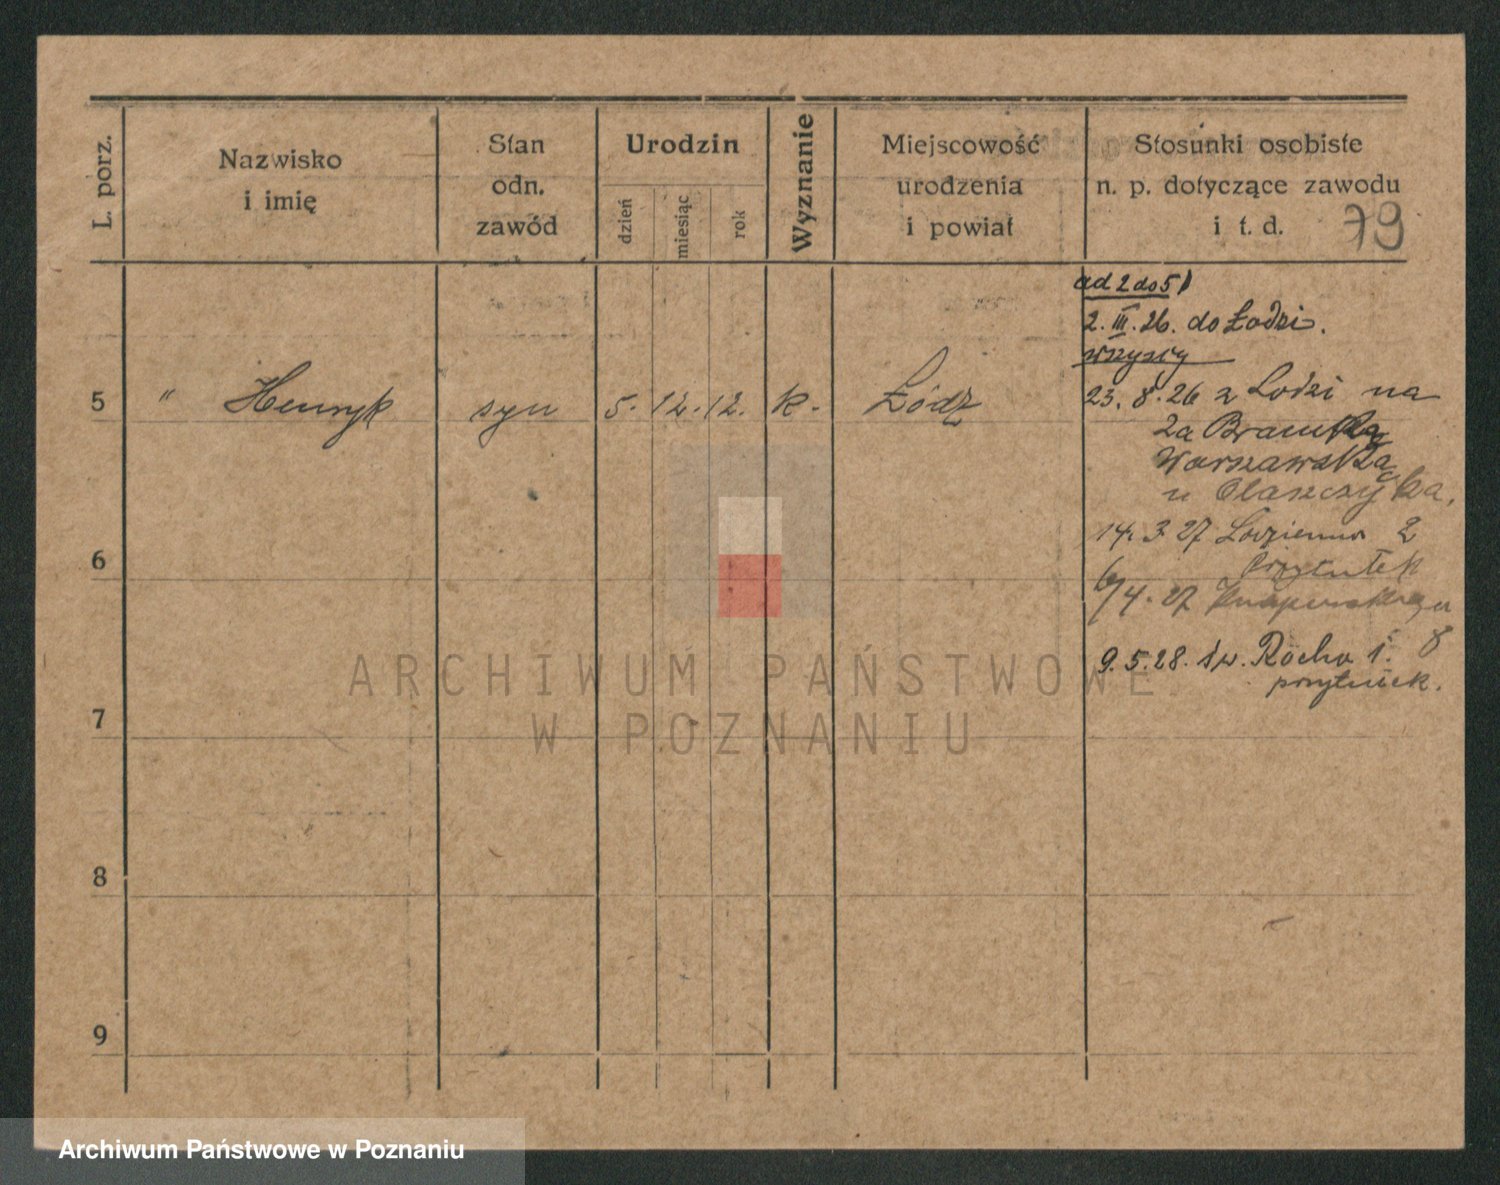 L. porz.
Nazwisko
i imię
Stan
odn.
zawód
Urodzin
dzień
miesiąc
rok
Wyznanie
Miejscowość
urodzenia
i powiat
Stosunki osobiste
n. p. dotyczące zawodu
i t. d.
79
ad 2 do 5)
2. III. 26. do Łodzi.
wszyscy
5 " Henryk syn 5. 12. 12. k. Łódź
23. 8. 26 z Lodzi na
za Bramką
Warszawską
u Olaszczyka.
14. 3 27 Lazienna 2
Przytułek
6/4. 27
8
9. 5. 28. św. Rocha 1.
przytułek.
6
7
8
9
ARCHIWUM PAŃSTWOWE
W POZNANIU
Archiwum Państwowe w Poznaniu